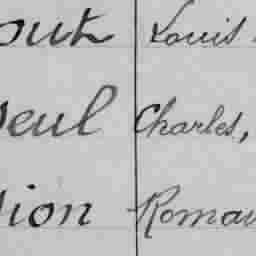 out Louis
eul Charles,
sion Romai